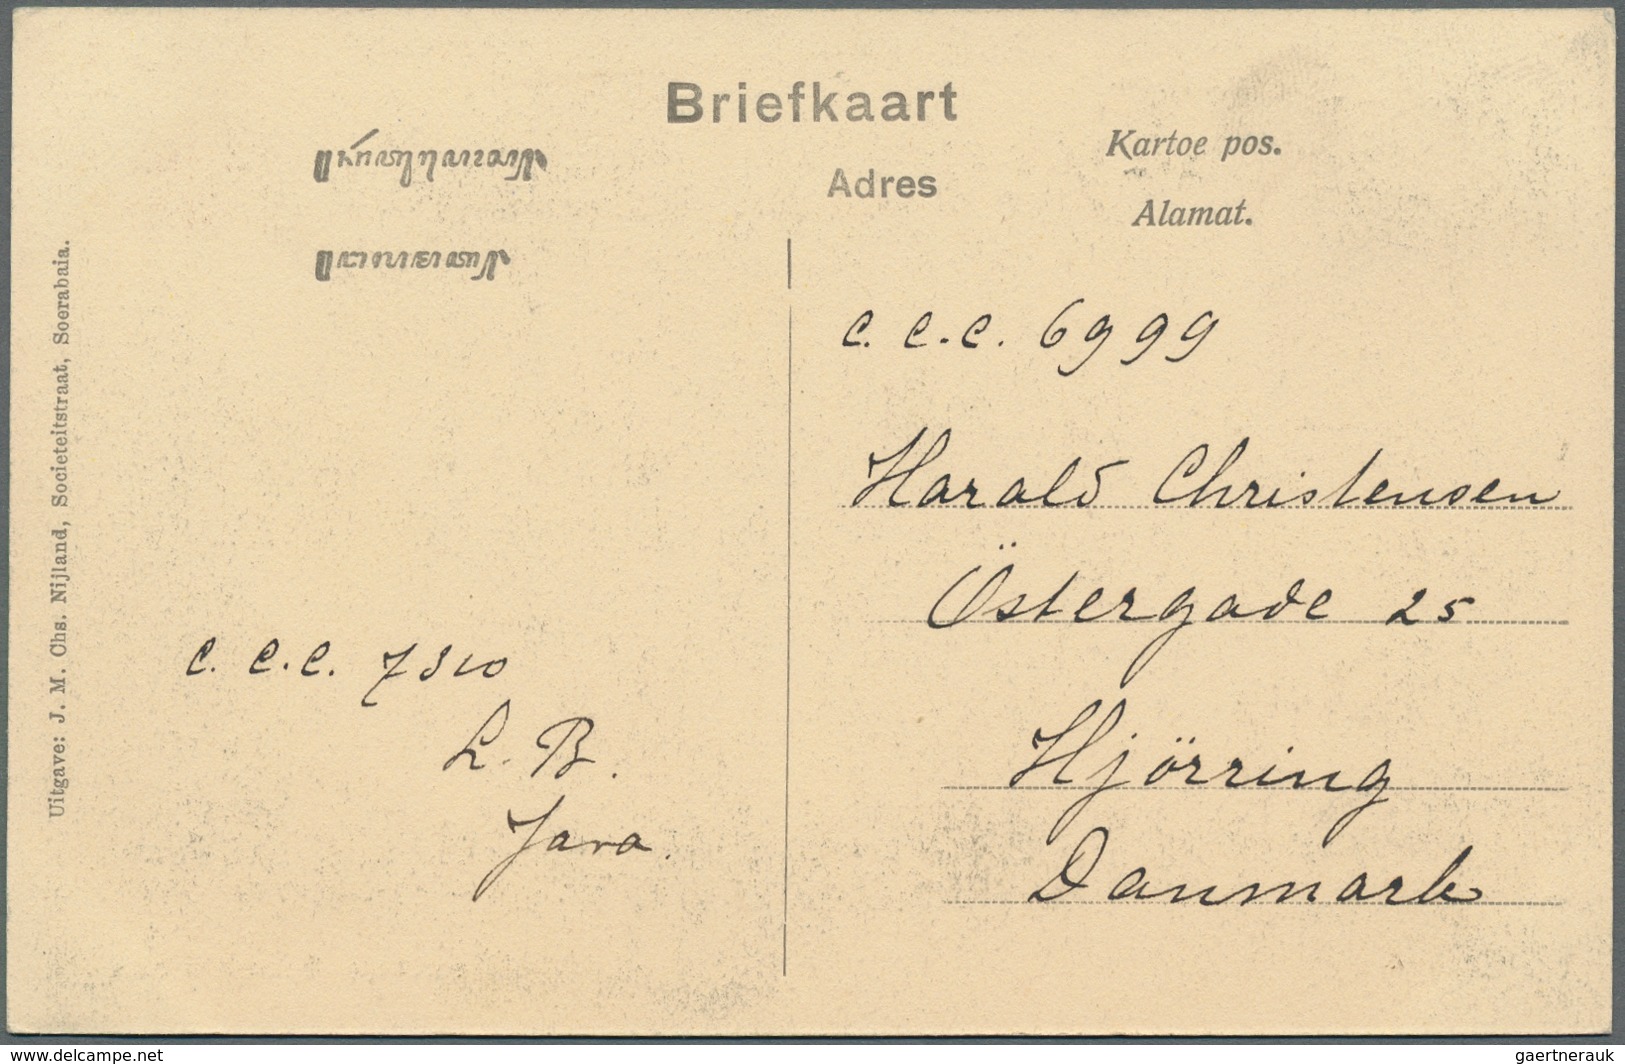 Briefkaart
Kartoe pos.
Adres
Alamat.
Uitgave: J. M. Chs. Nijland, Societeitstraat, Soerabaia.
C. C. C. 7310
L. B.
Java.
C. C. C. 6999
Harald Christensen
Östergade 25
Hjörring
Danmark
www.delcampe.net
gaertnerauk